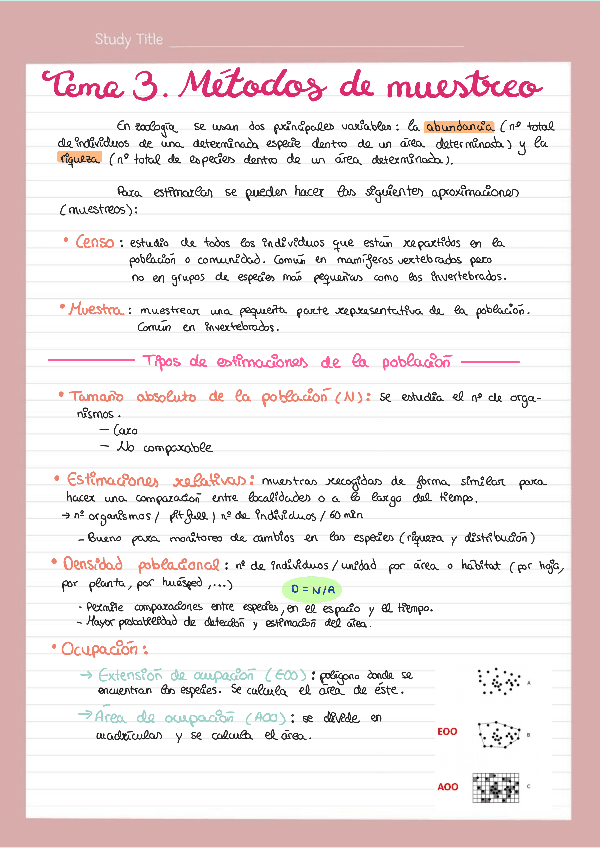 Study Title
Tema 3. Métodos de muestreo
En zoología se usan dos principales variables: la abundancia (nº total
de individuos de una determinada especie dentro de un área determinada) y la
riqueza (nº total de especies dentro de un área determinada).
Para estimarlas se pueden hacer las siguientes aproximaciones
(muestreos):
• Censo: estudio de todos los individuos que están repartidos en la
población o comunidad. Común en mamíferos vertebrados pero
no en grupos de especies más pequeñas como los invertebrados.
• Muestra: muestrear una pequeña parte representativa de la población.
Común en invertebrados.
Tipos de estimaciones de la población
• Tamaño absoluto de la población (N): se estudia el nº de orga-
nismos.
- Caro
- No comparable
• Estimaciones relativas: muestras recogidas de forma similar para
hacer una comparación entre localidades o a lo largo del tiempo.
→ nº organismos / pitfall; nº de individuos / 60 min
- Bueno para monitoreo de cambios en las especies (riqueza y distribución)
• Densidad poblacional: nº de individuos / unidad por área o hábitat (por hoja,
por planta, por huésped, ...)
D = N/A
- Permite comparaciones entre especies, en el espacio y el tiempo.
- Mayor probabilidad de detección y estimación del área.
• Ocupación:
→ Extensión de ocupación (EOO): polígono donde se
encuentran las especies. Se calcula el área de éste.
A
→ Área de ocupación (AOO): se divide en
cuadrículas y se calcula el área.
EOO
B
AOO
C